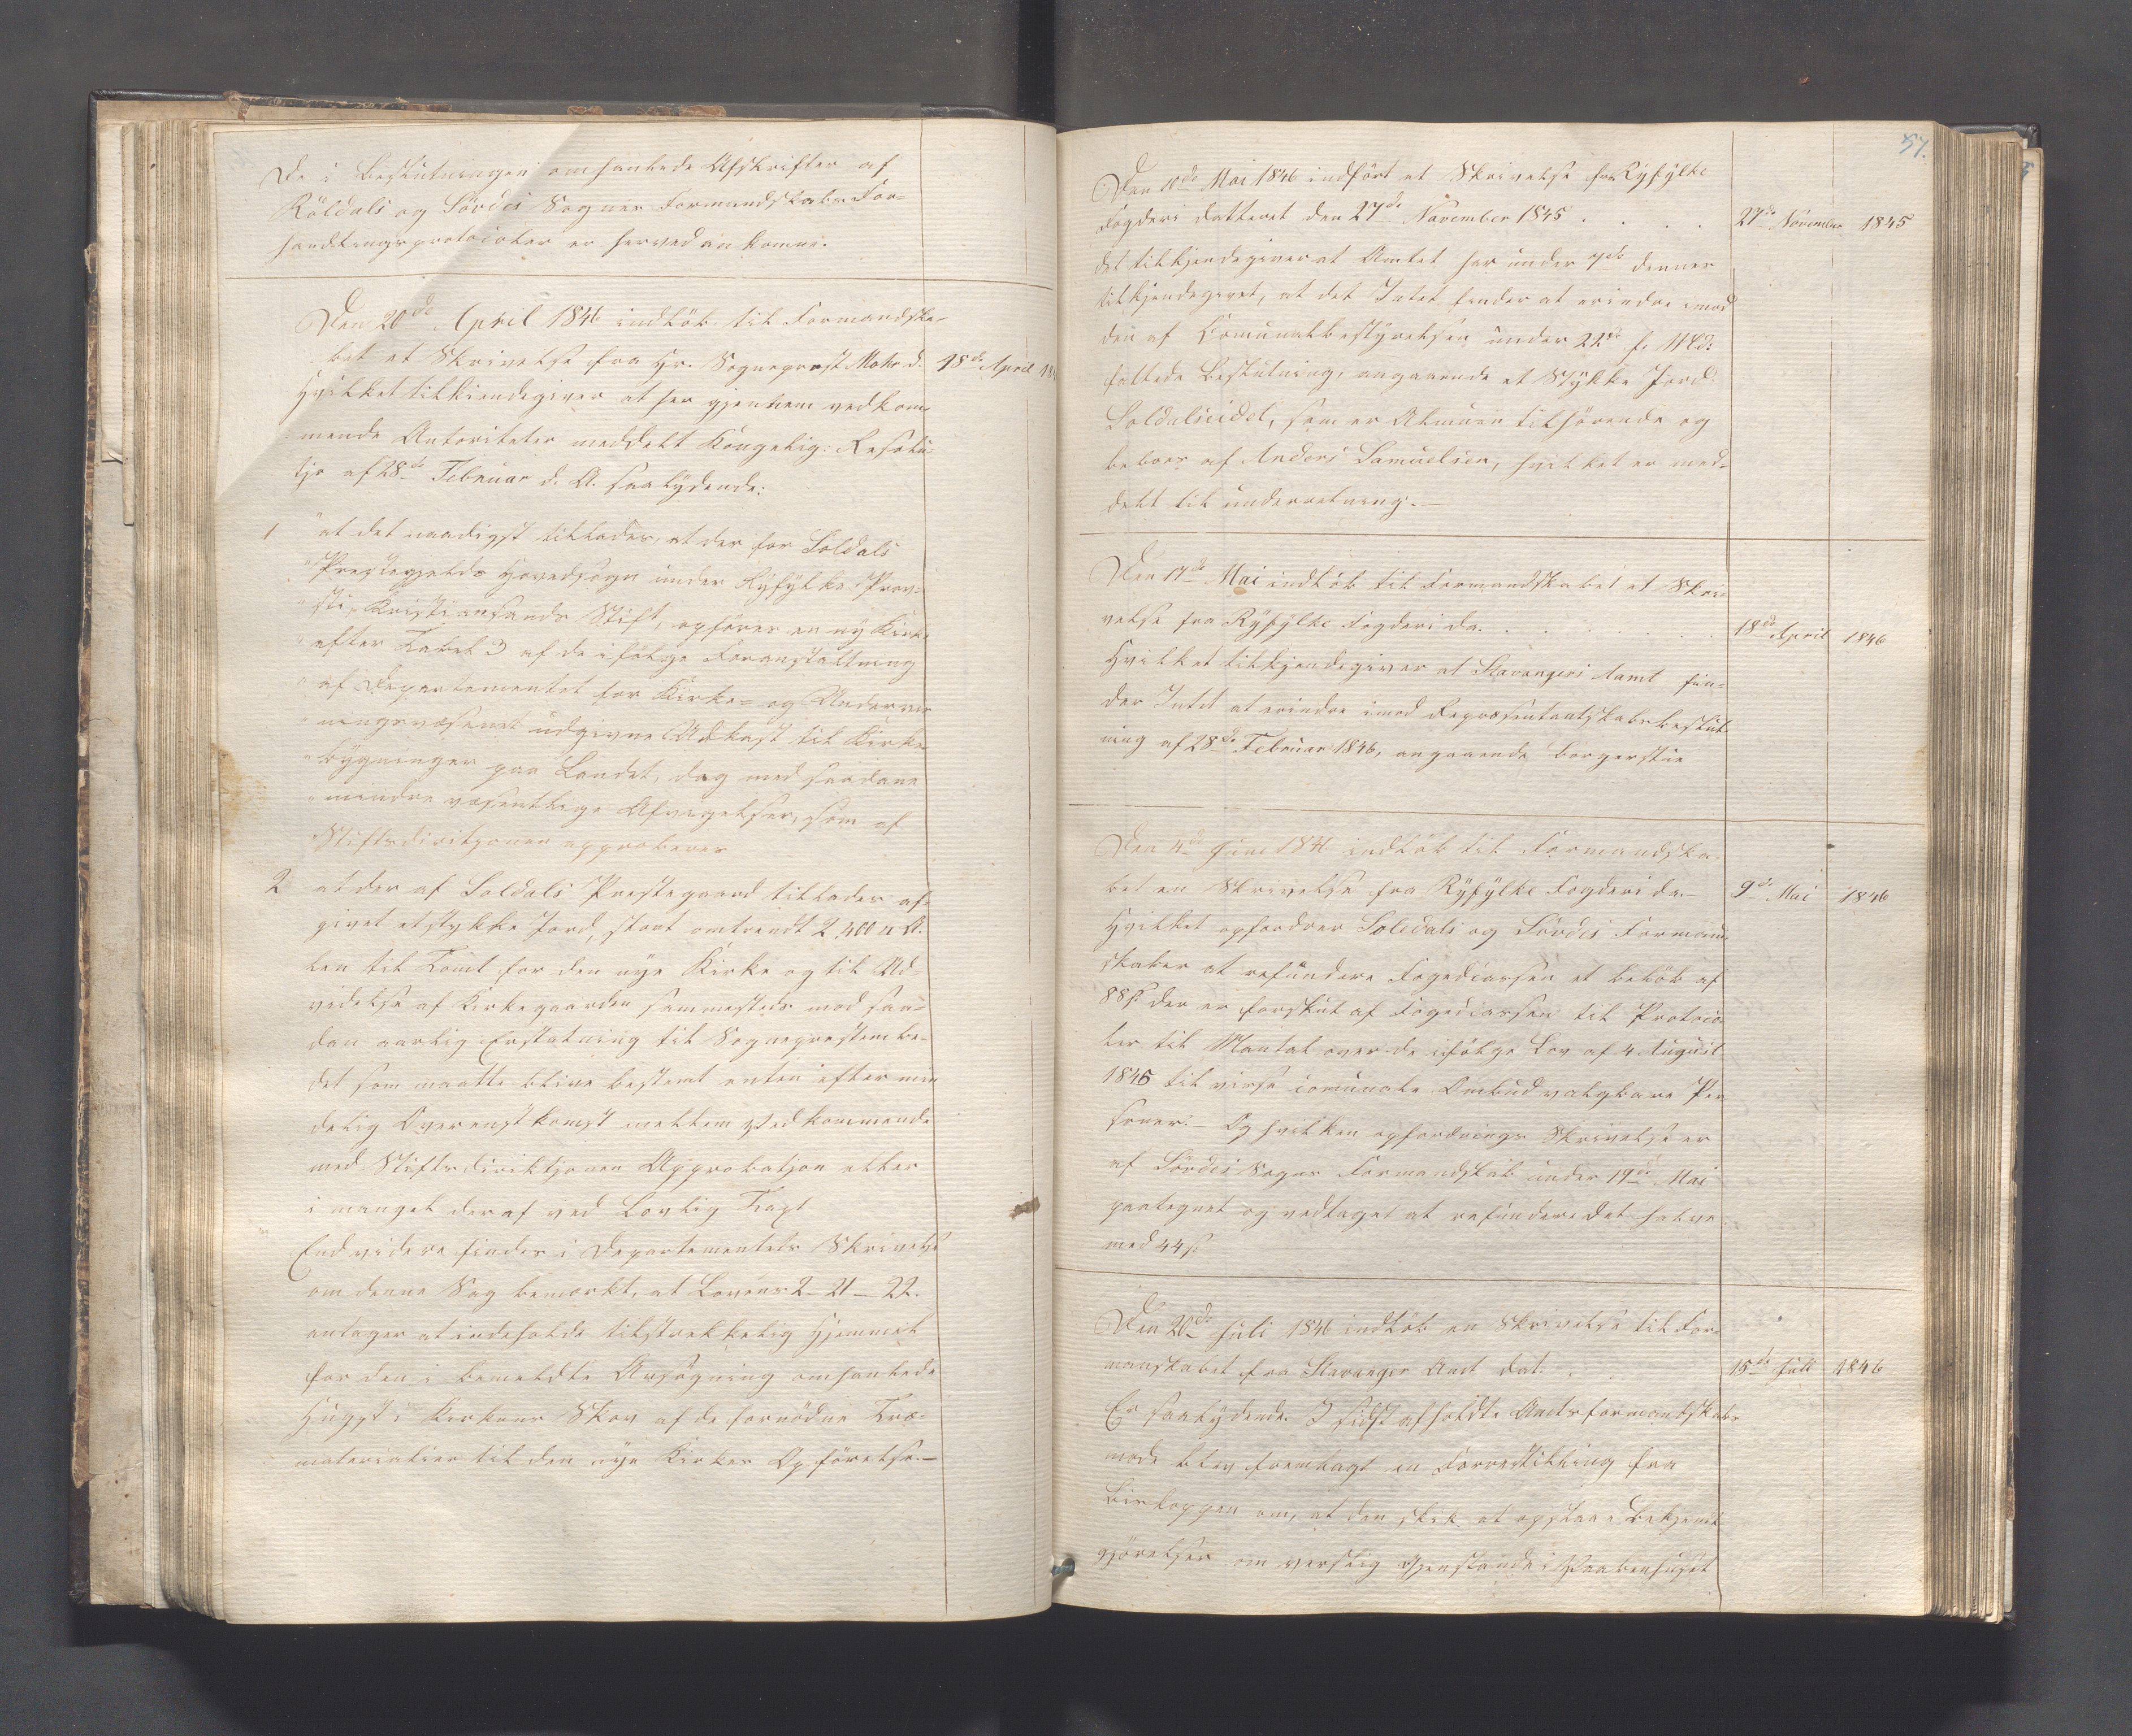 De i Beslutningen omhandlede Afskrifter af
Röldals og Sövdes Sognes Formandskabs For-
handlingsprotocoler er herved ankomne.
Den 20de April 1846 indlöb til Formandska-
bet et Skrivelse fra Hr. Sogneprest Mohr d. 18de April 184
Hvilket tilkiendegiver at her gjennem vedkom-
mende Autoriteter meddelt Kongelig Resolu-
tjo af 28de Februar d. A. saalydende:
1 "at det naadigst tillades, at der for Soldals
"Prestegjelds Hovedsogn under Ryfylke Prov-
"sti Kristiansands Stift, opföres en ny Kirke
"efter Tabel 3 af de ifölge Foranstaltning
"af Departementet for Kirke- og Underviis
"ningsvæsenet udgivne Udkast til Kirke
"bygninger paa Landet, dog med saadane
"mindre væsentlige Afvigelser, som af
Stiftsdirektjonen approberes
2 at der af Soldals Prestegaard tillades af-
givet et stykke Jord, stort omtrendt 2,400 □ A.
len til Tomt for den nye Kirke og til Ud-
videlse af Kirkegaarden sammesteds mod saa-
dan aarlig Erstatning til Sogneprestembe-
det som maatte blive bestemt enten efter min
delig Overenskomst mellem Vedkommende
med Stiftsdirektjonen Approbatjon eller
i mangel deraf ved Lovlig Taxt
Endvidere findes i Departementets Skrivelse
om denne Sag bemærkt, at Lovens 2-21-22.
antages at indeholde tilstrekkelig Hjemmel
for den i bemeldte Ansögning omhandlede
Hugst i Kirkens Skov af de fornödne Træ-
materialier til den nye Kirkes Opförelse.-
57.
Den 10de Mai 1846 indfört et Skrivelse fra Ryfylke
Fogderi Datteret den 27de November 1845 . . . . 27de November 1845
det tilkjendegiver at Amtet har under 7de dennes
tilkjendegivet, at det Intet finder at erindre imod
den af Komunalbestyrelsen under 22de f. Md:
fattede Beslutning, angaaende et Stykke Jord
Soldalseidet, som er Almuen tilhörende og
beboes af Anders Samuelsen, hvilket er med-
delt til underretning.-
Den 17de Mai indlöb til Formandskabet et Skri-
velse fra Ryfylke Fogderi da. . . . . . 18de April 1846
Hvilket tilkjendegiver at Stavangers Aamt fin-
der Intet at erindre imod Representantskabsbeslut-
ning af 28de Februar 1846, angaaende Borgerstue
Den 4de Juni 1846 indlöb til Formandska-
bet en Skrivelse fra Ryfylke Fogderi da.- 9de Mai 1846
Hvilket opfordrer Soledals og Sövdes Formand-
skaber at refundere Fogedcassen et belöb af
88 s der er forskut af Fogedcassen til Protoco-
ler til Mantal over de ifölge Lov af 4 August
1845 til visse comunale Ombud valgbare Per
soner:- Og hvilken opfordrings Skrivelse er
af Sövdes Sogns Formandskab under 19de Mai
paategnet og vedtaget at refundere det halve
med 44 s
Den 20de Juli 1846 indlöb en Skrivelse til For-
manskabet fra Stavanger Amt dat. . . 15de Juli 1846
Er saalydende. I sidst afholdte Amtsformandskabs
möde blev fremlagt en Forrestilling fra
Biskoppen om, at den skik at opslaae Bekjendt
gjörelser om verslig Gjenstande i Vaabenhuset